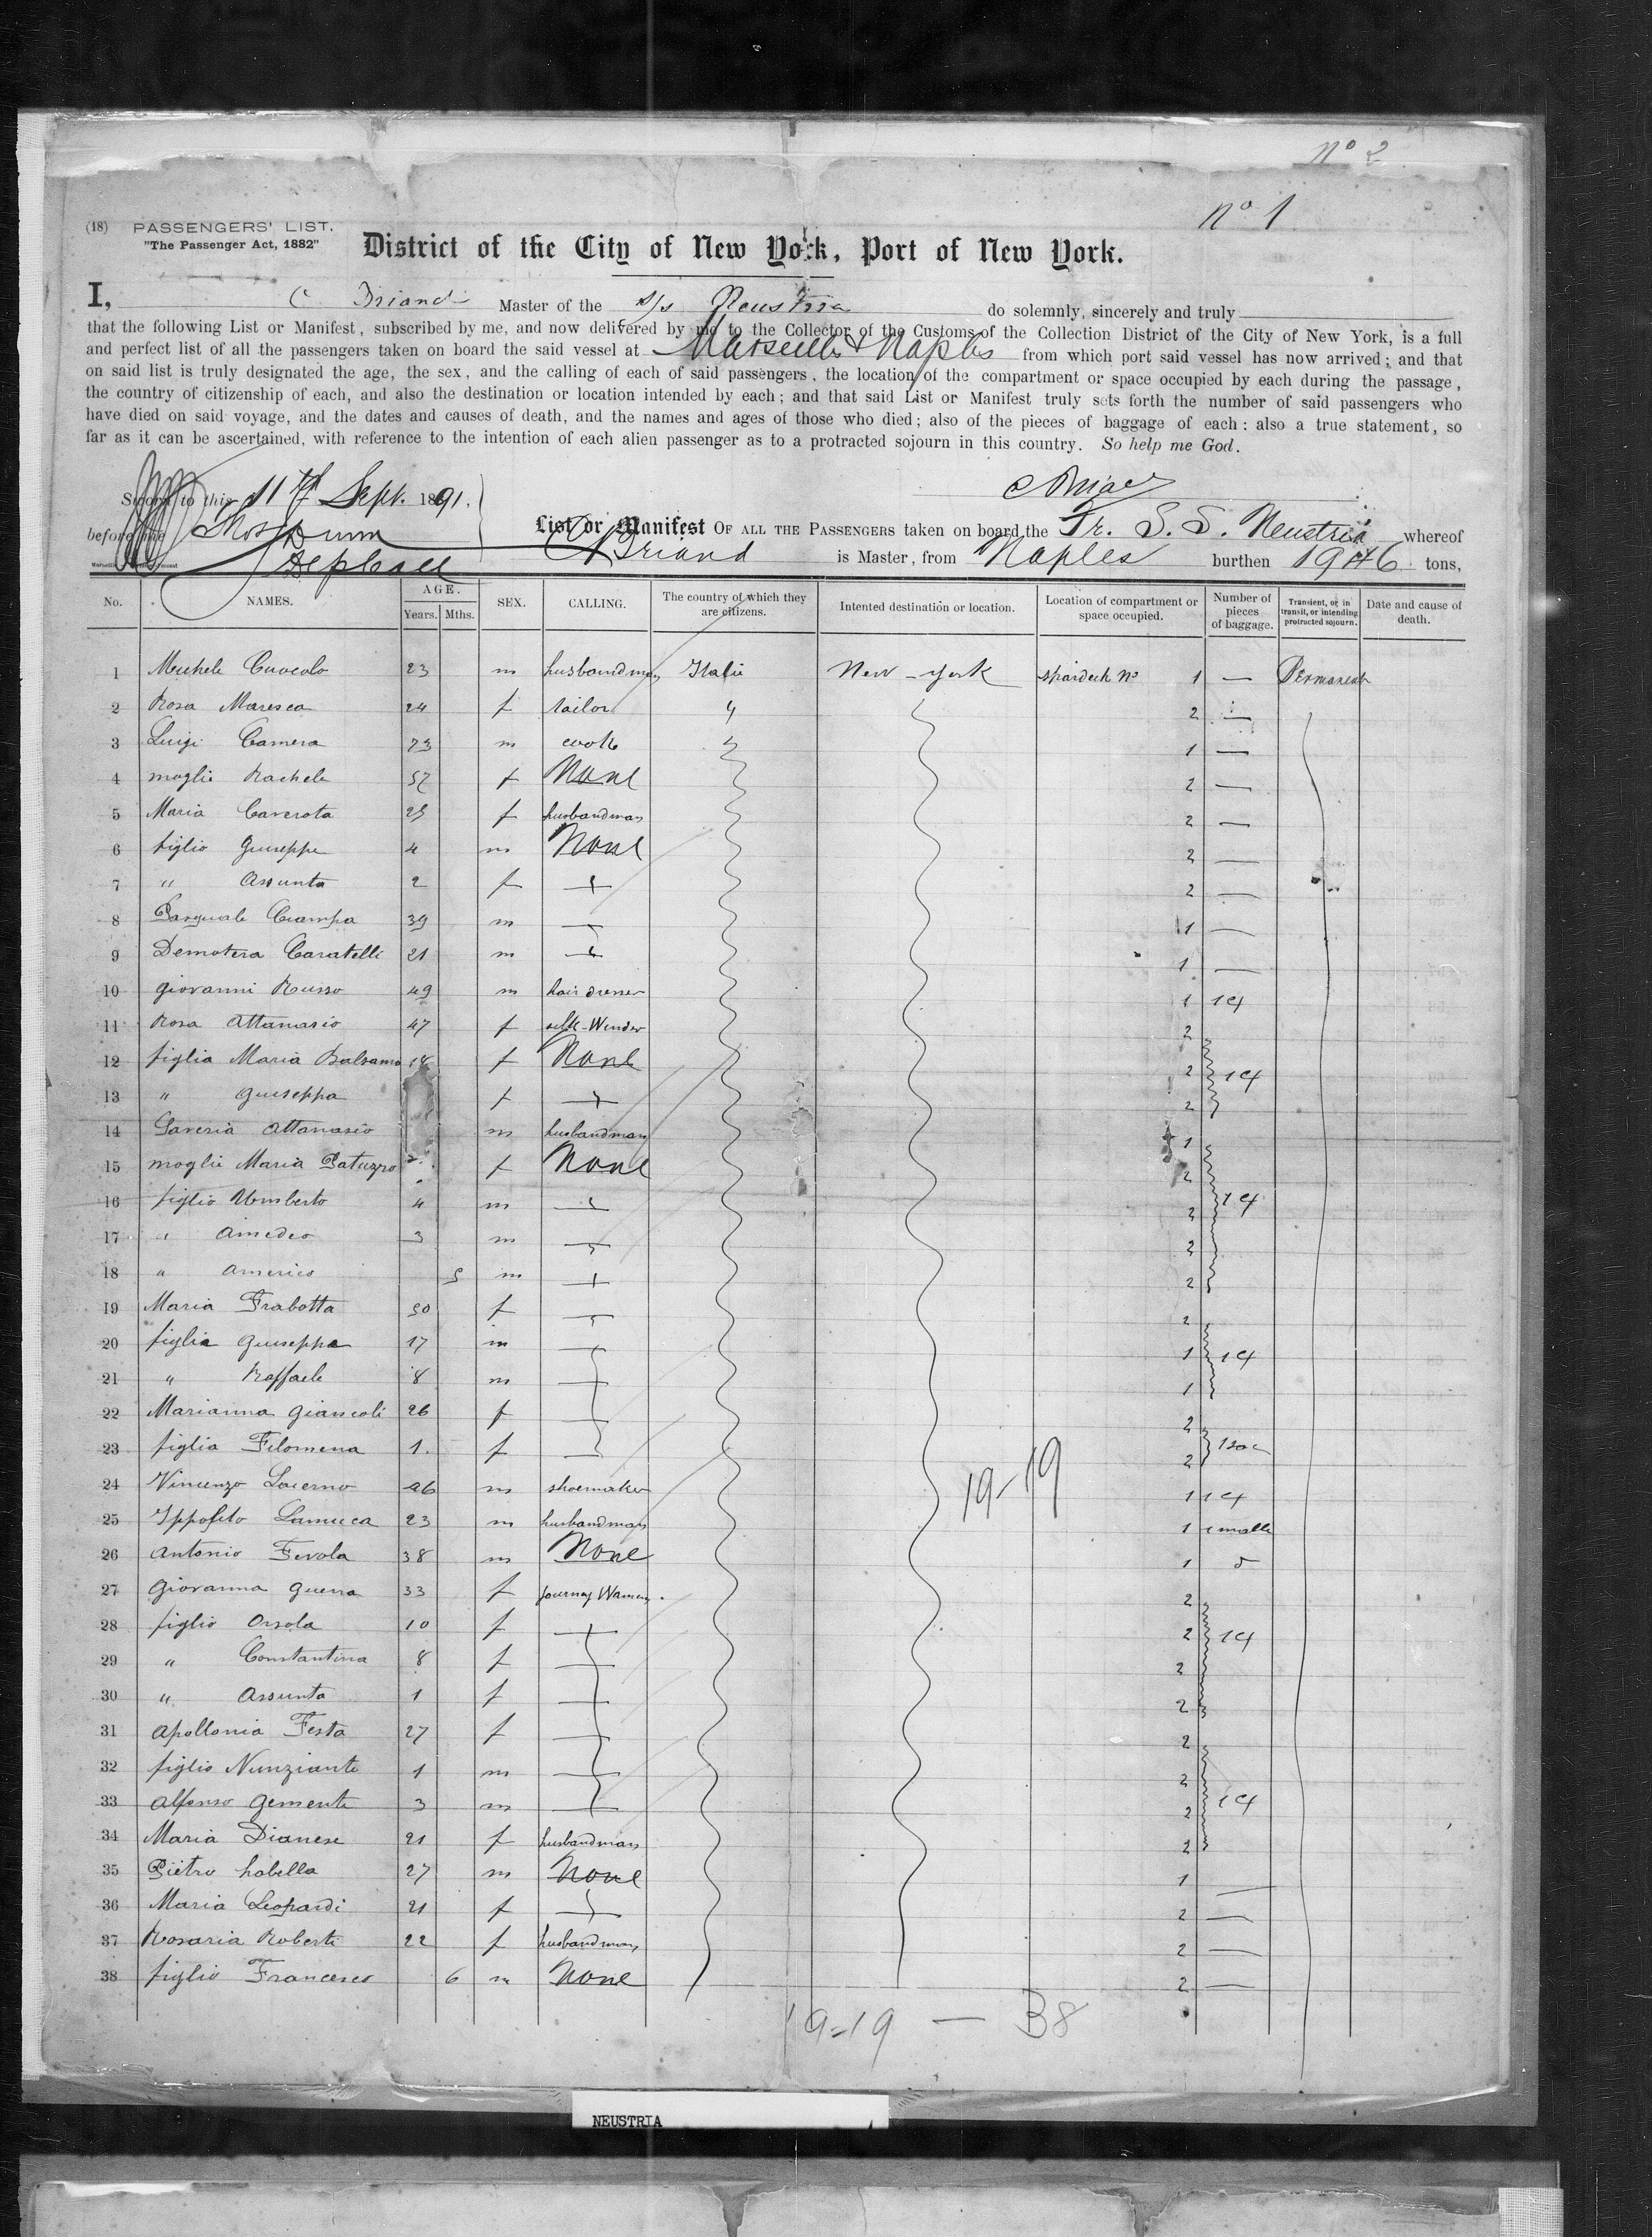 No 2
No 1
(18) PASSENGERS' LIST.
"The Passenger Act, 1882"
District of the City of New York, Port of New York.
I, C Briand Master of the s/s Neustria do solemnly, sincerely and truly
that the following List or Manifest, subscribed by me, and now delivered by me to the Collector of the Customs of the Collection District of the City of New York, is a full
and perfect list of all the passengers taken on board the said vessel at Marseille & Naples from which port said vessel has now arrived; and that
on said list is truly designated the age, the sex, and the calling of each of said passengers, the location of the compartment or space occupied by each during the passage,
the country of citizenship of each, and also the destination or location intended by each; and that said List or Manifest truly sets forth the number of said passengers who
have died on said voyage, and the dates and causes of death, and the names and ages of those who died; also of the pieces of baggage of each: also a true statement, so
far as it can be ascertained, with reference to the intention of each alien passenger as to a protracted sojourn in this country. So help me God.
Sworn to this 11th Sept. 1891.
C Briand
before me Thos Dunn
Dep Coll
List or Manifest OF ALL THE PASSENGERS taken on board the Fr. S. S. Neustria whereof
C Briand is Master, from Naples burthen 1946 tons,
No. NAMES. AGE. Years. Mths. SEX. CALLING. The country of which they are citizens. Intented destination or location. Location of compartment or space occupied. Number of pieces of baggage. Transient, or in transit, or intending protracted sojourn. Date and cause of death.
1 Michele Cuocolo 23 m husbandman Italie New-york spardeck No 1 — Permanent
2 Rosa Maresca 24 f tailor " 2 —
3 Luigi Camera 73 m cook " 1 —
4 moglie Rachele 57 f None 2 —
5 Maria Caverota 25 f husbandman 2 —
6 figlio Giuseppe 4 m None 2 —
7 " Assunta 2 f 2 —
8 Pasquale Ciampa 39 m 1 —
9 Demotera Caratelli 21 m 1 —
10 Giovanni Russo 49 m hair dresser 1 1 c
11 Rosa Attanasio 47 f silk-Winder 2
12 figlia Maria Balsamo 18 f None 2 1 c
13 " Giuseppa f 2
14 Saveria Attanasio m husbandman 1
15 moglie Maria Patuzzo f None 2
16 figlio Umberto 4 m 2 1 c
17 " Amedeo 3 m 2
18 " Americo 5 m 2
19 Maria Frabotta 50 f 2
20 figlia Giuseppa 17 m 1 1 c
21 " Raffaele 8 m 1
22 Marianna Giancoli 26 f 2
23 figlia Filomena 1 f 2 1 sac
24 Vincenzo Lucerno 26 m shoemaker 1 1 c
25 Ippolito Lamuca 23 m husbandman 1 1 malle
26 Antonio Fevola 38 m None 1
27 Giovanna Guerra 33 f 2
28 figlio Orsola 10 f 2 1 c
29 " Constantina 8 f 2
30 " Assunta 1 f 2
31 Apollonia Festa 27 f 2
32 figlio Nunziante 1 m 2
33 Alfonso Gemente 3 m 2 1 c
34 Maria Dianese 21 f husbandman 2
35 Pietro Labella 27 m None 1 —
36 Maria Leopardi 21 f 2 —
37 Rosaria Roberti 22 f husbandman 2 —
38 figlio Francesco 6 m None 2 —
19-19
19-19 — 38
NEUSTRIA